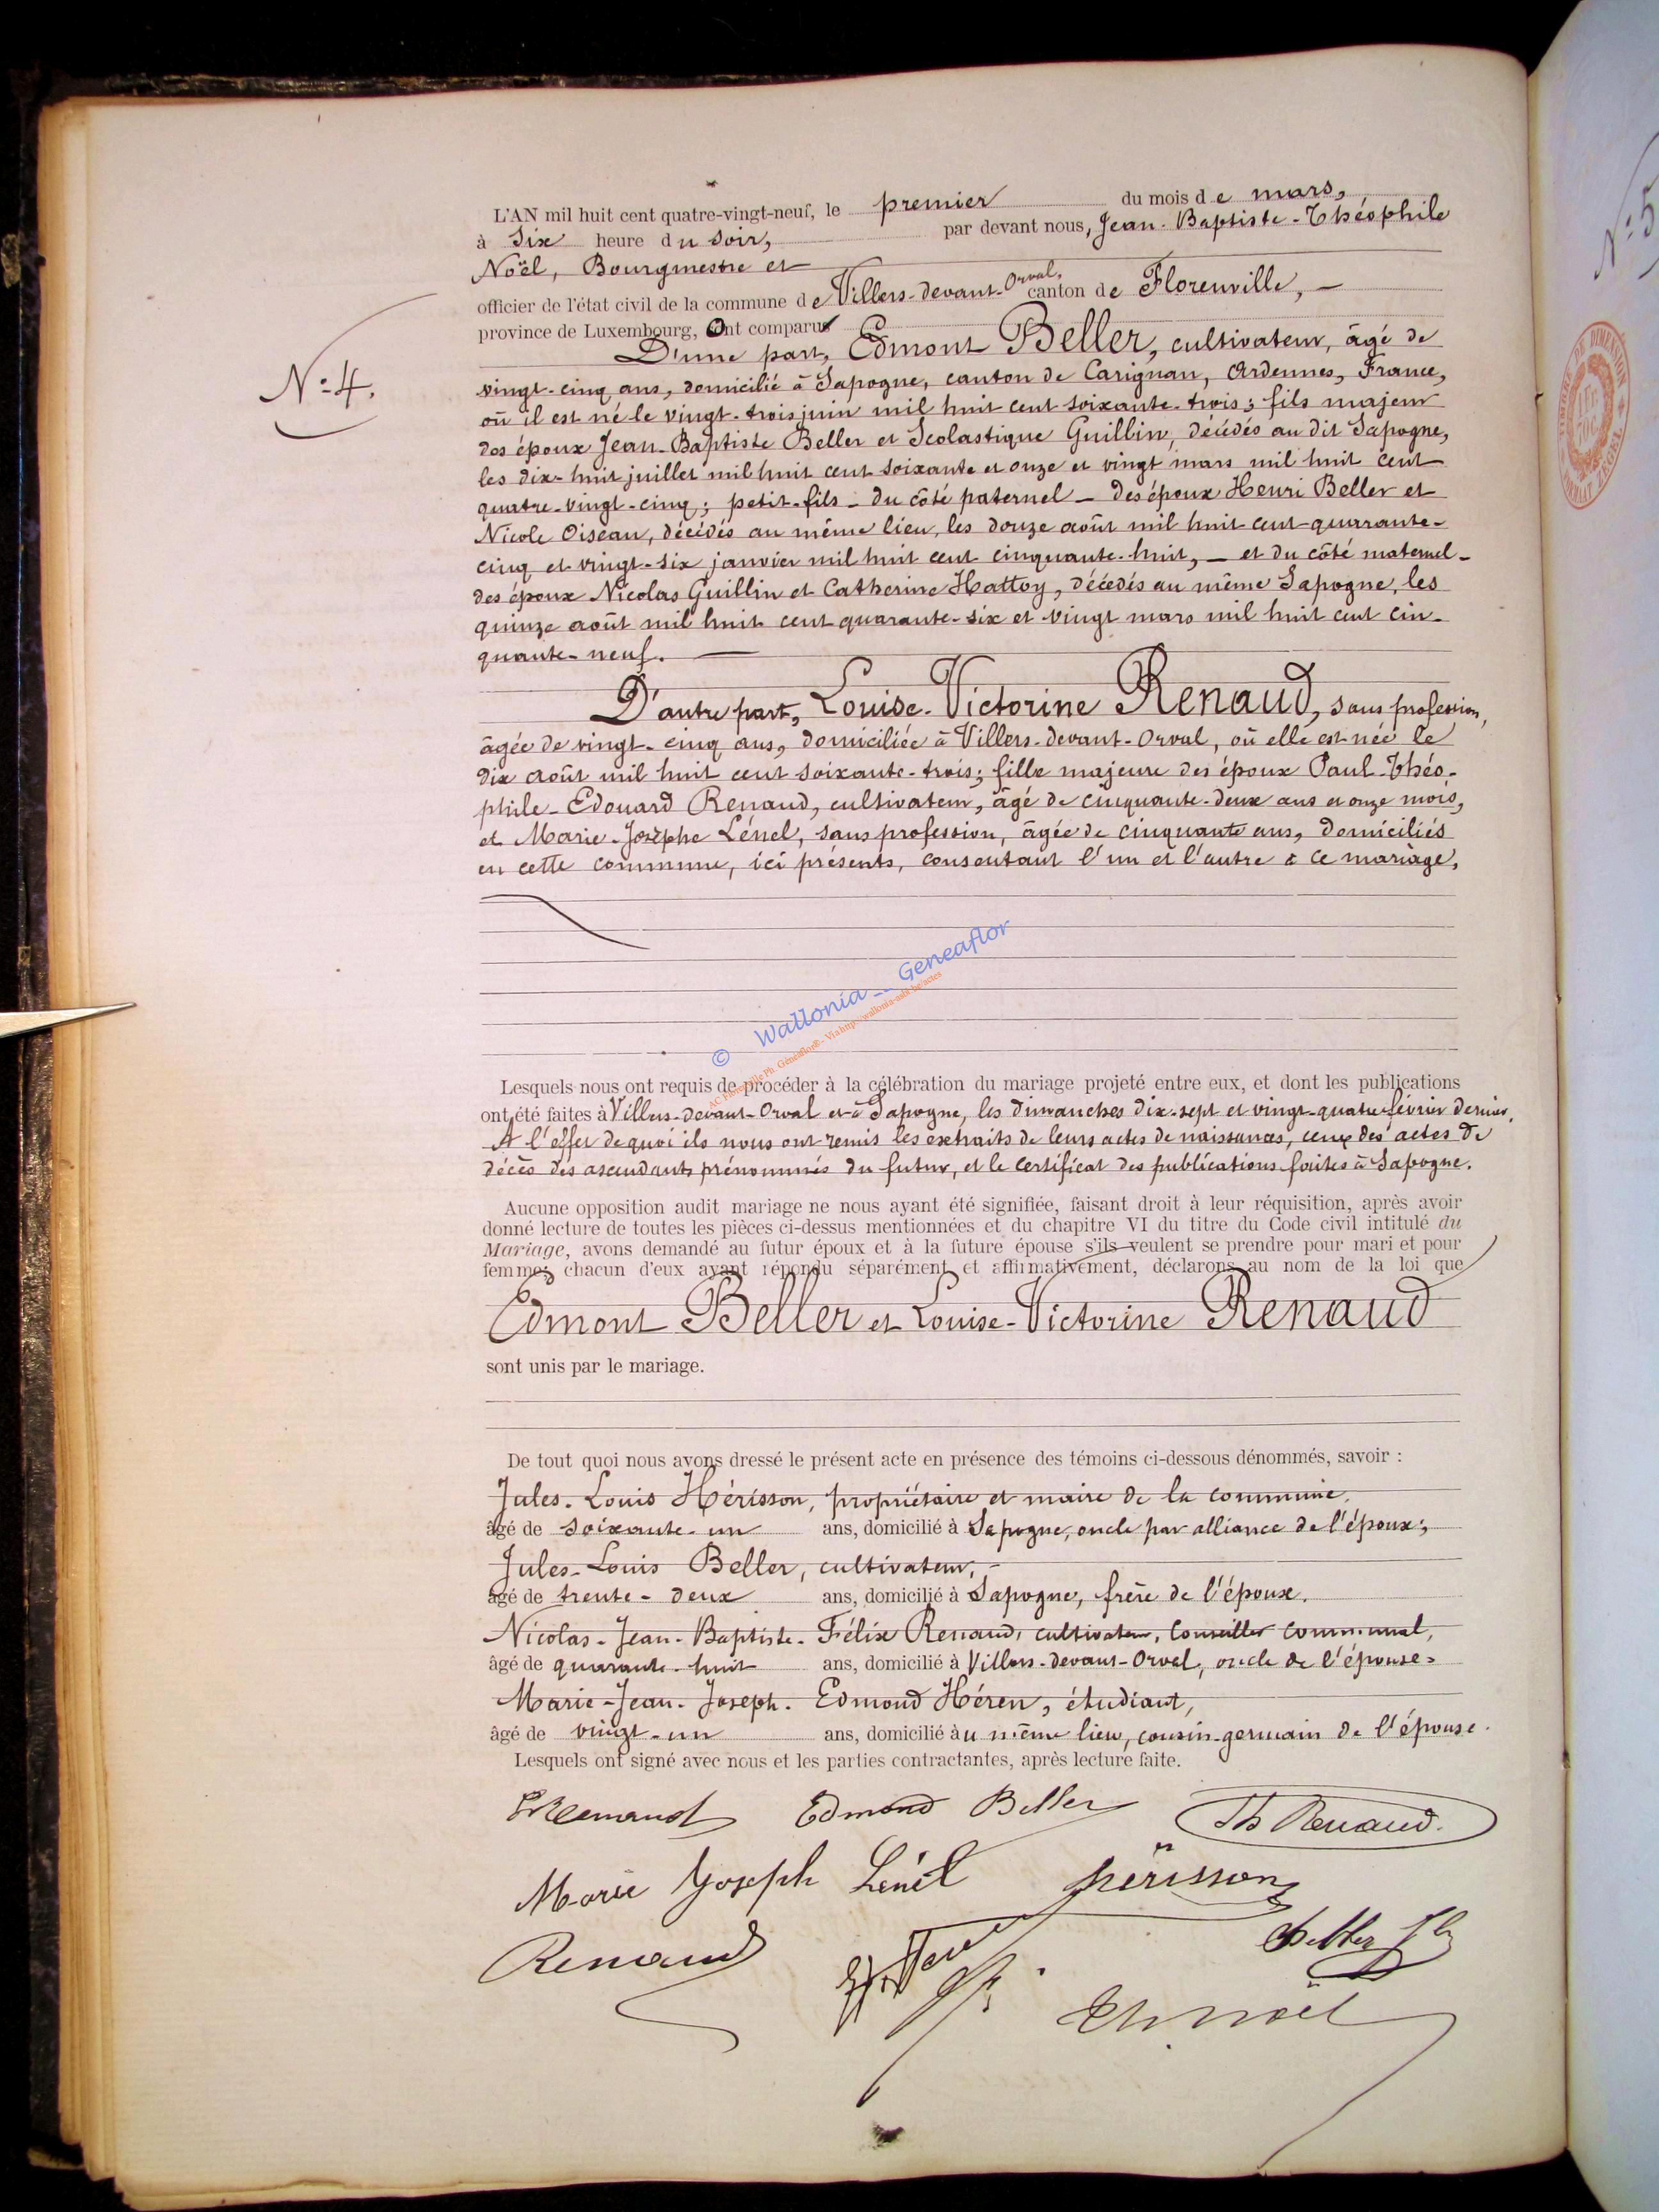 L'AN mil huit cent quatre-vingt-neuf, le premier du mois de mars,
à Six heure du soir, par devant nous, Jean-Baptiste-Théophile
Noël, Bourgmestre et
officier de l'état civil de la commune de Villers-devant-Orval, canton de Florenville, —
province de Luxembourg, Ont comparus
D'une part, Edmont Beller, cultivateur, âgé de
N° 4.
vingt-cinq ans, domicilié à Sapogne, canton de Carignan, Ardennes, France,
où il est né le vingt-trois juin mil huit cent soixante-trois; fils majeur
des époux Jean-Baptiste Beller et Scolastique Guillin, décédés au dit Sapogne,
les dix-huit juillet mil huit cent soixante et onze et vingt mars mil huit cent
quatre-vingt-cinq; petit-fils - du côté paternel - des époux Henri Beller et
Nicole Oiseau, décédés au même lieu, les douze août mil huit cent quarante-
cinq et vingt-six janvier mil huit cent cinquante-huit, - et du côté maternel -
des époux Nicolas Guillin et Catherine Hattoy, décédés au même Sapogne, les
quinze août mil huit cent quarante-six et vingt mars mil huit cent cin-
quante-neuf. —
D'autre part, Louise-Victorine Renaud, sans profession,
âgée de vingt-cinq ans, domiciliée à Villers-devant-Orval, où elle est née le
dix août mil huit cent soixante-trois; fille majeure des époux Paul-Théo-
phile-Edouard Renaud, cultivateur, âgé de cinquante-deux ans et onze mois,
et Marie-Josèphe Lénel, sans profession, âgée de cinquante ans, domiciliés
en cette commune, ici présents, consentant l'un et l'autre à ce mariage,
© Wallonia __ Geneaflor
Lesquels nous ont requis de procéder à la célébration du mariage projeté entre eux, et dont les publications
ont été faites à Villers-devant-Orval et à Sapogne, les dimanches dix-sept et vingt-quatre février dernier.
A l'effet de quoi ils nous ont remis les extraits de leurs actes de naissances, ceux des actes de
décès des ascendants prénommés du futur, et le certificat des publications faites à Sapogne.
Aucune opposition audit mariage ne nous ayant été signifiée, faisant droit à leur réquisition, après avoir
donné lecture de toutes les pièces ci-dessus mentionnées et du chapitre VI du titre du Code civil intitulé du
Mariage, avons demandé au futur époux et à la future épouse s'ils veulent se prendre pour mari et pour
femme; chacun d'eux ayant répondu séparément et affirmativement, déclarons au nom de la loi que
Edmont Beller et Louise-Victorine Renaud
sont unis par le mariage.
De tout quoi nous avons dressé le présent acte en présence des témoins ci-dessous dénommés, savoir :
Jules-Louis Hérisson, propriétaire et maire de la commune,
âgé de soixante-un ans, domicilié à Sapogne, oncle par alliance de l'époux;
Jules-Louis Beller, cultivateur, -
âgé de trente-deux ans, domicilié à Sapogne, frère de l'époux.
Nicolas-Jean-Baptiste-Félix Renaud, cultivateur, Conseiller communal,
âgé de quarante-huit ans, domicilié à Villers-devant-Orval, oncle de l'épouse.
Marie-Jean-Joseph-Edmond Héren, étudiant,
âgé de vingt-un ans, domicilié au même lieu, cousin-germain de l'épouse.
Lesquels ont signé avec nous et les parties contractantes, après lecture faite.
Renaud Edmond Beller Th Renaud.
Marie Joseph Lénel Hérisson
Renaud Beller Jles
Th. Noël
N° 5